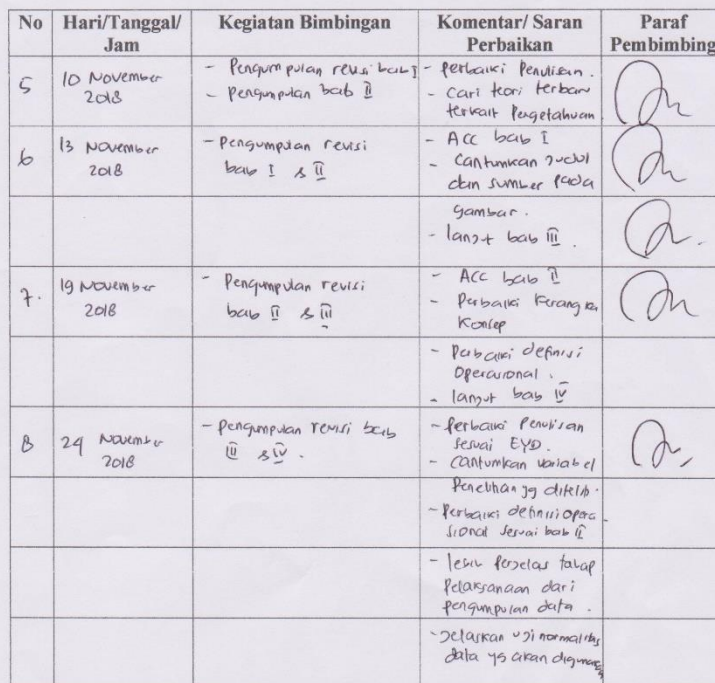 No Hari/Tanggal/ Jam Kegiatan Bimbingan Komentar/ Saran Perbaikan Paraf Pembimbing
5 10 November 2018
- Pengumpulan revisi bab I
- Pengumpulan bab II
- Perbaiki Penulisan.
- Cari teori terbaru
terkait Pengetahuan
6 13 November 2018
- Pengumpulan revisi
bab I & II
- ACC bab I
- Cantumkan Judul
dan sumber pada
gambar.
- lanjut bab III.
7. 19 November 2018
- Pengumpulan revisi
bab II & III
- ACC bab II
- Perbaiki Kerangka
Konsep
- Perbaiki definisi
Operasional.
- lanjut bab IV
8 24 November 2018
- Pengumpulan revisi bab
III & IV.
- Perbaiki Penulisan
sesuai EYD.
- Cantumkan variabel
Penelitian yg diteliti.
- Perbaiki definisi opera
sional sesuai bab II
- lebih Perjelas tahap
Pelaksanaan dari
pengumpulan data.
- Jelaskan uji normalitas
data yg akan digunakan